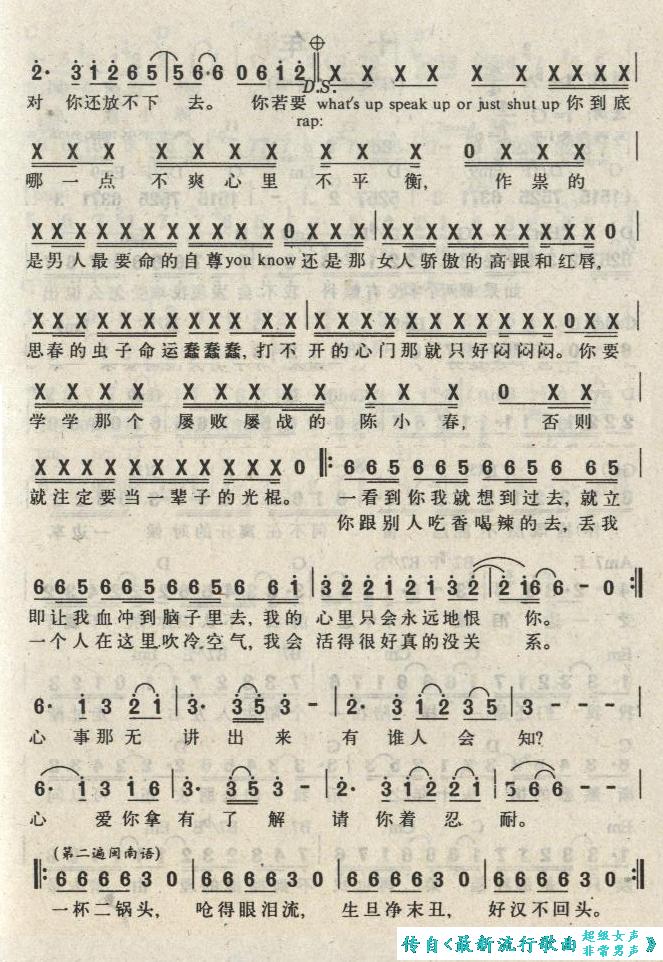 2· 3 1 2 6 5 | 5 6·6 0 6 1 2 | X X X X X X X X X X |
D.S.
对 你还放不下 去。 你若要 what's up speak up or just shut up 你到底
rap:
X X X X X X X X X X 0 X X X |
哪一点 不爽心里 不平衡, 作祟的
X X X X X X X X X X X X 0 X X X | X X X X X X X X X X X 0 |
是男人最要命的自尊you know还是那 女人骄傲的高跟和红唇,
思春的虫子命运蠢蠢蠢, 打不 开的心门那就只好闷闷闷。你要
X X X X X X X X X X X X 0 X X |
学学那个 屡败屡战的 陈小春, 否则
就注定要当一辈子的光棍。 一看到你我就想到过去, 就立
你跟别人吃香喝辣的去, 丢我
即让我血冲到脑子里去, 我的 心里只会永远地恨 你。
一个人在这里吹冷空气, 我会 活得很好真的没关 系。
6· 1 3 2 1 | 3· 3 5 3 - | 2· 3 1 2 3 5 | 3 - - - |
心 事那无 讲出来 有谁人会知?
6· 1 3 1 6 | 3· 3 5 3 2· | 2· 3 1 2 2 1 | 5 6 6 - - |
心 爱你拿有了解 请你着忍 耐。
(第二遍闽南语)
‖: 6 6 6 6 3 0 | 6 6 6 6 3 0 | 6 6 6 6 3 0 | 6 6 6 6 3 0 :‖
一杯二锅头, 呛得眼泪流, 生旦净末丑, 好汉不回头。
传自《最新流行歌曲 超级女声 非常男声》